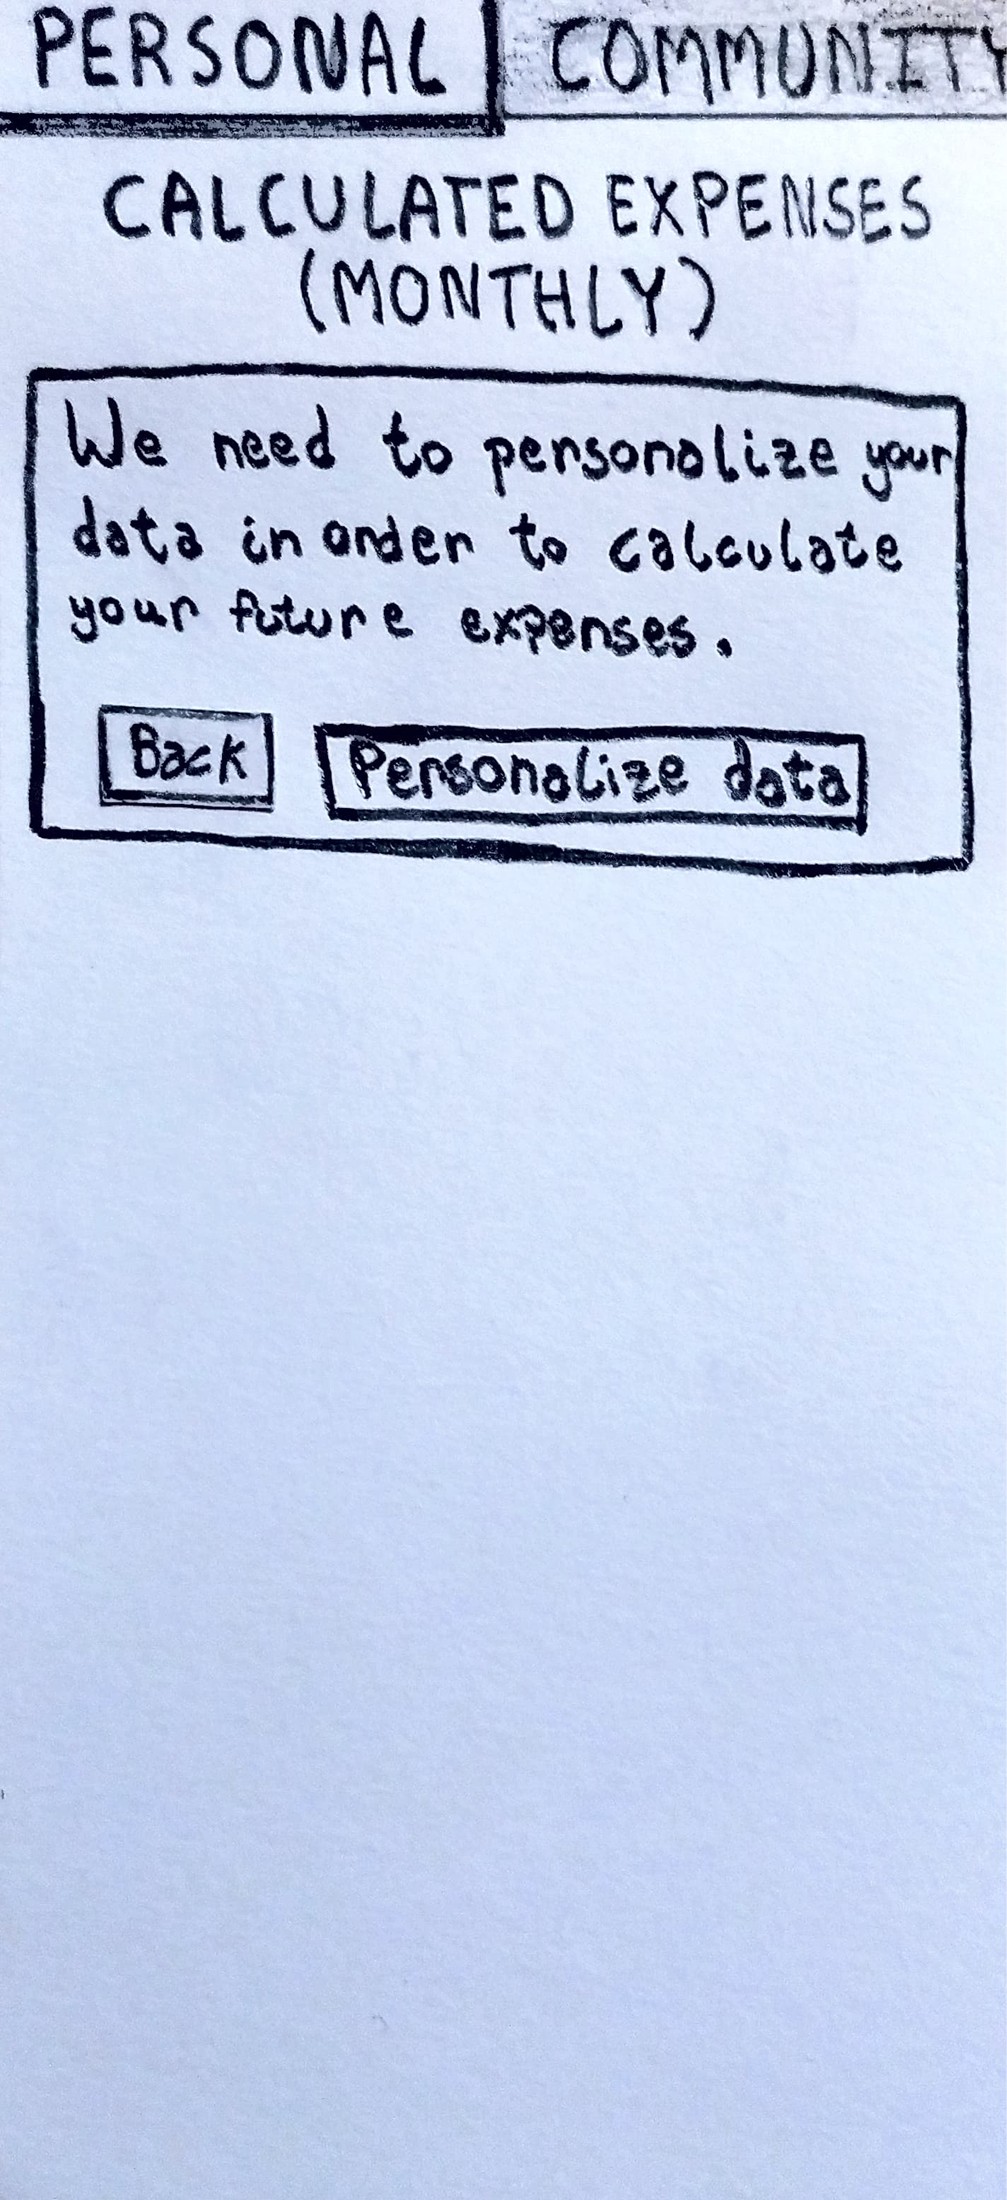 PERSONAL COMMUNITY
CALCULATED EXPENSES
(MONTHLY)
We need to personalize your
data in order to calculate
your future expenses.
Back Personalize data